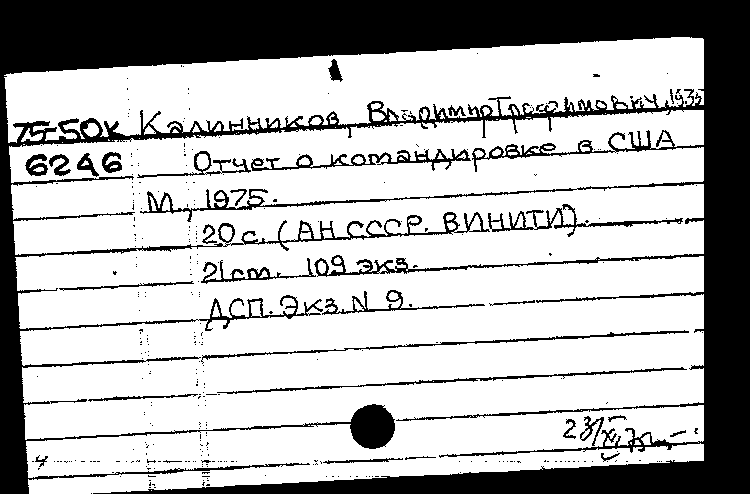 75-50К Калинников, Владимир Трофимович, 1935
6246 Отчет о командировке в США
М., 1975.
20 с. (АН СССР. ВИНИТИ).
21 см. 109 экз.
ДСП. Экз. N 9.
23/XII 75
4